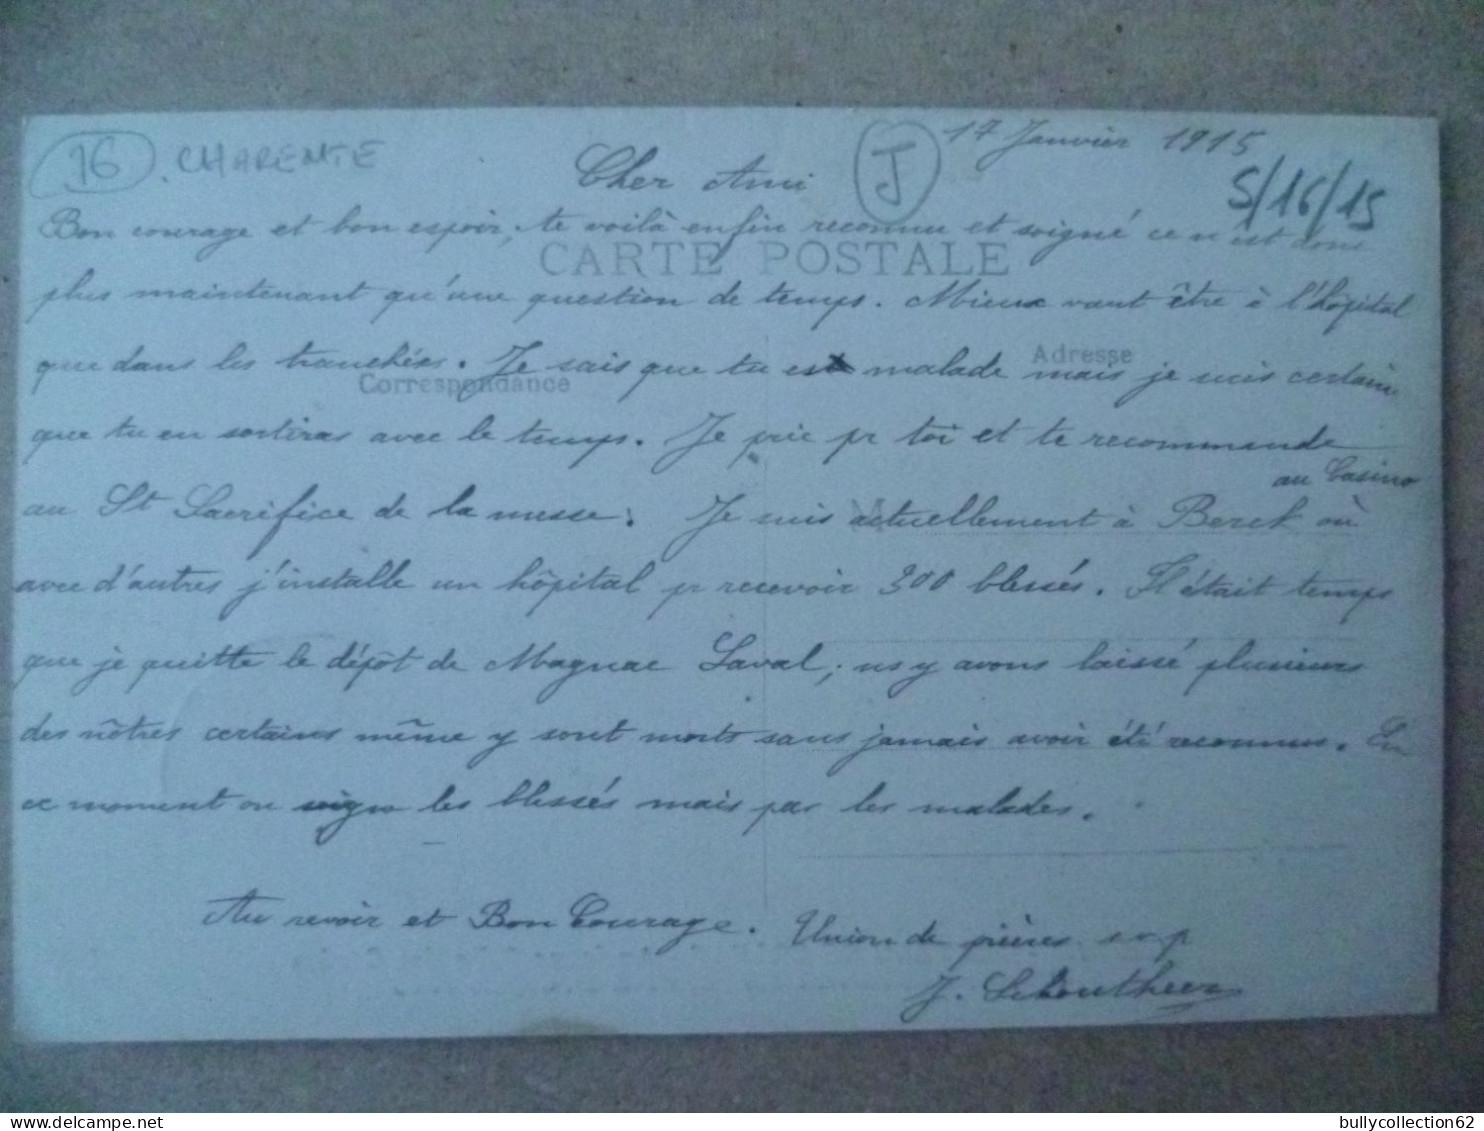 16 . CHARENTE
J
17 Janvier 1915
S/16/15
Cher Ami
Bon courage et bon espoir, te voilà enfin reconnu et soigné ce n'est donc
CARTE POSTALE
plus maintenant qu'une question de temps. Mieux vaut être à l'hôpital
que dans les tranchées. Je sais que tu es malade mais je suis certain
Adresse
Correspondance
que tu en sortiras avec le temps. Je prie pr toi et te recommande
au St Sacrifice de la messe. Je suis actuellement à Berck où
au Casino
avec d'autres j'installe un hôpital pr recevoir 300 blessés. Il était temps
que je quitte le dépôt de Magnac Laval, ns y avons laissé plusieurs
des nôtres certains même y sont morts sans jamais avoir été reconnus. En
ce moment on soigne les blessés mais pas les malades.
Au revoir et Bon Courage. Union de prières s.v.p
J. Schoutheer
bullycollection62